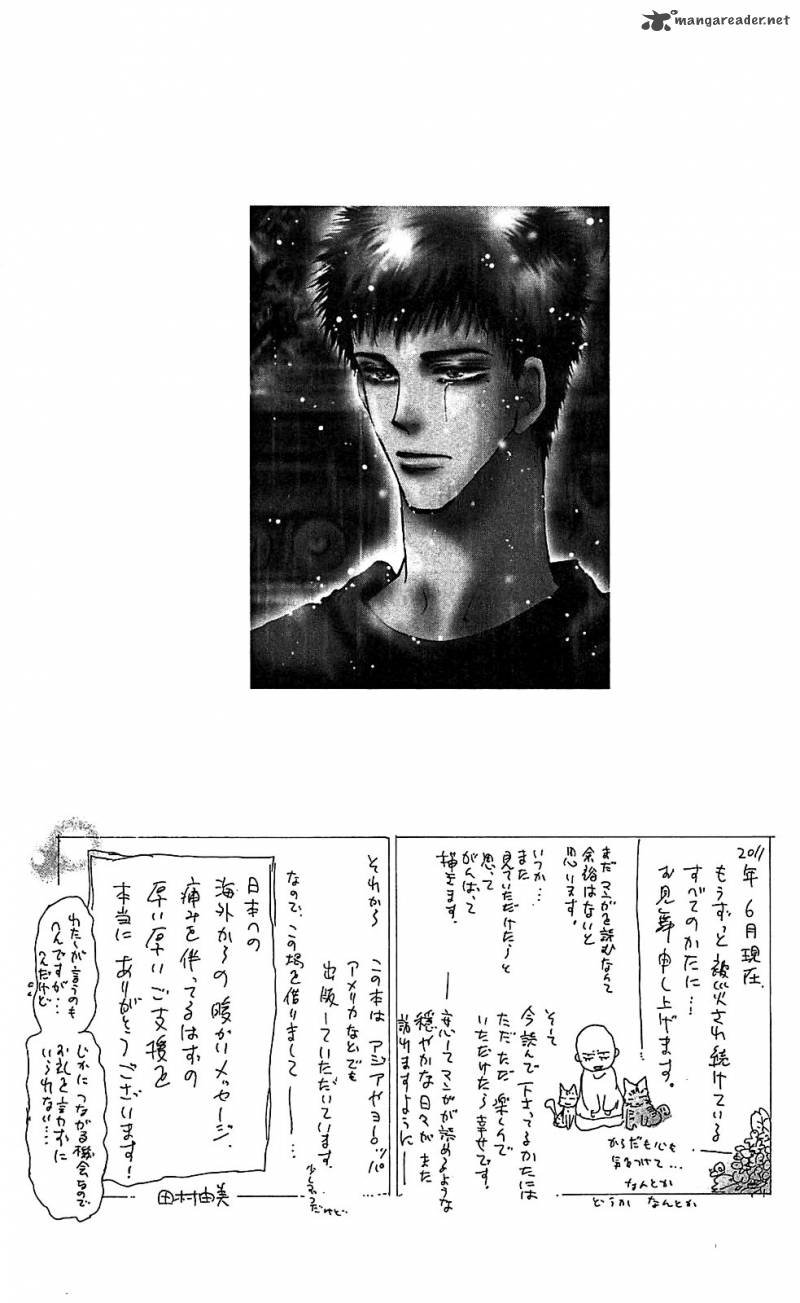 mangareader.net
2011年 6月現在.
もうずっと 被災され続けている
すべてのかたに…
お見舞申し上げます。
まだマンガを読むなんて
余裕はないと
思います。
いつか…
また
見ていただけたらと
思って
がんばって
描きます。
そして
今読んで下さってるかたには
ただただ 楽しんで
いただけたら幸せです。
――安心してマンガが読めるような
穏やかな日々が また
訪れますように――
からだも心も
気をつけて…
なんとか
どうか なんとか
それから この本は アジアやヨーロッパ
アメリカなどでも
出版していただいています.
少しずつだけど
なので、この場を借りまして――…
日本への
海外からの 暖かいメッセージ、
痛みを伴ってるはずの
厚い厚い ご支援を
本当に ありがとうございます!
わたしが言うのも
へんですが…
へんだけど
じかにつながる機会なので
お礼を言わずに
いられない…
田村由美